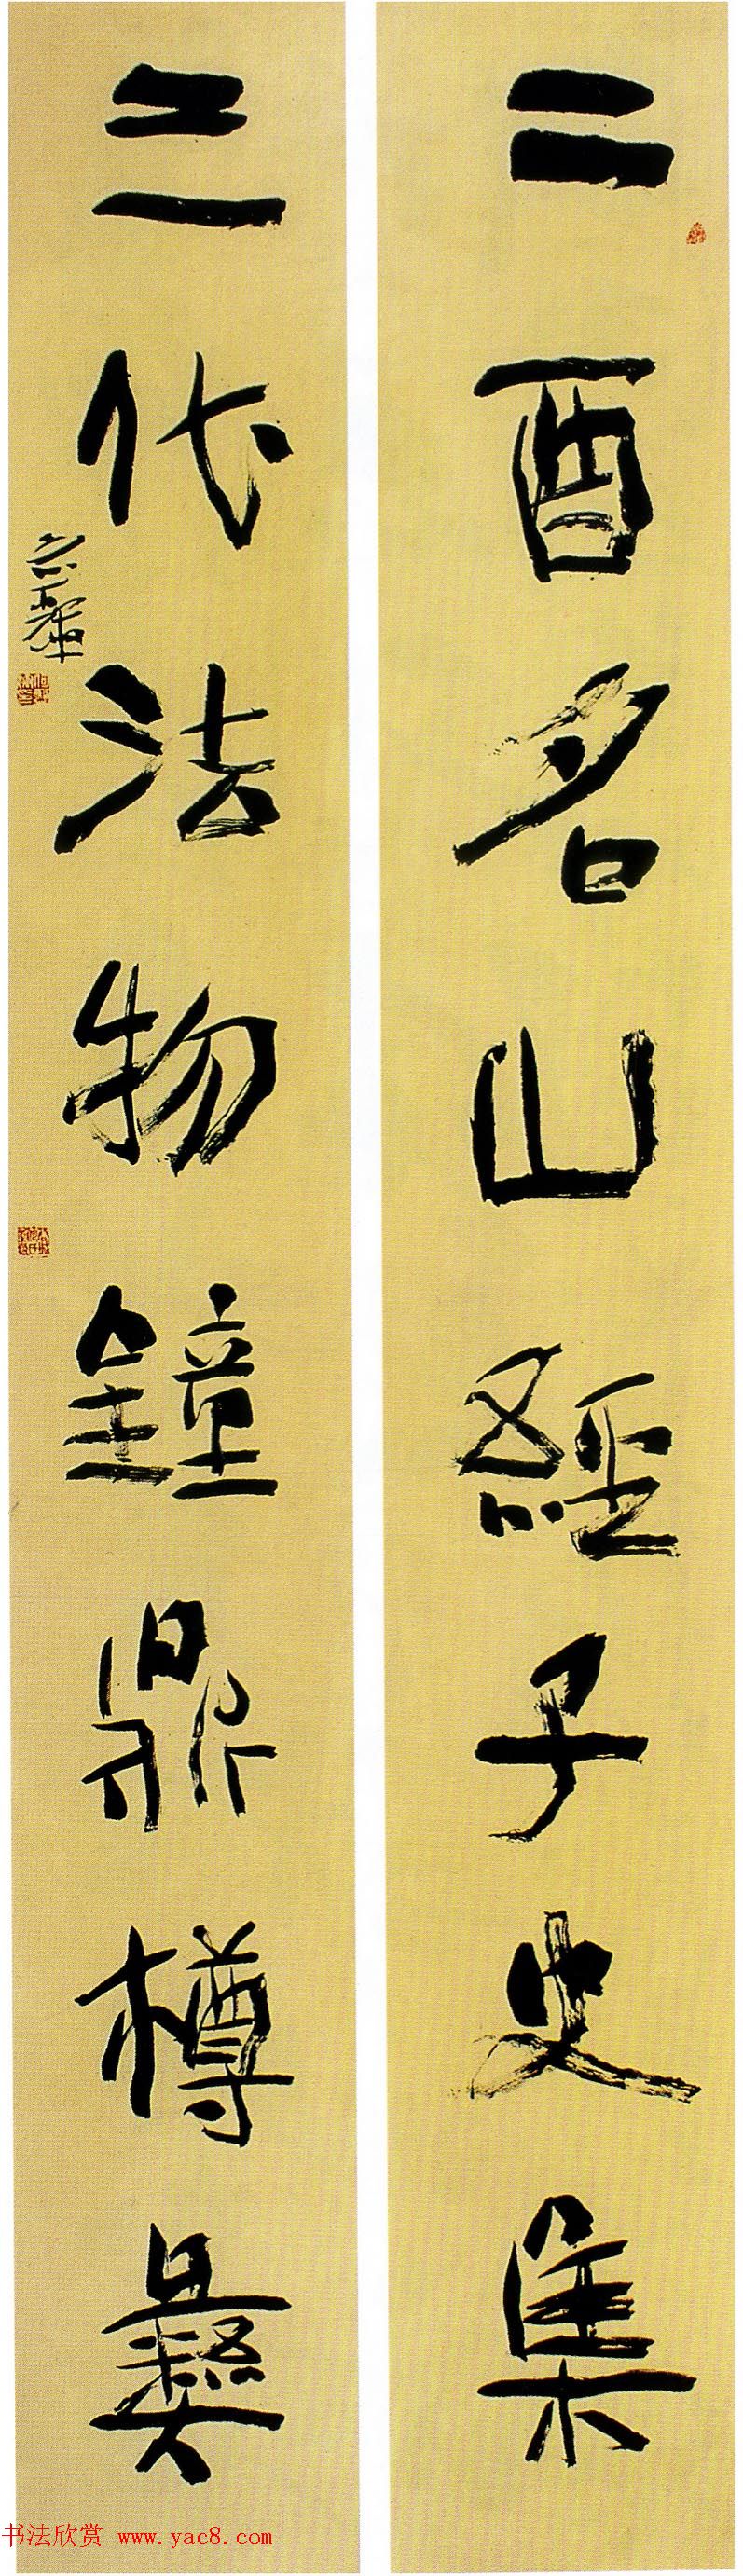 二酉名山經子史集
三代法物鐘鼎樽彝
书法欣赏 www.yac8.com